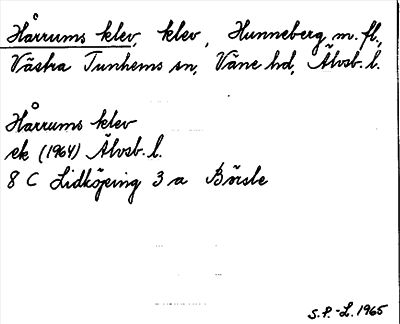 Hårrums klev, klev, Hunneberg m. fl.,
Västra Tunhems sn, Väne hd, Älvsb. l.
Hårrums klev
ek (1964) Älvsb. l.
8 C Lidköping 3 a Börsle
S.P.-L. 1965